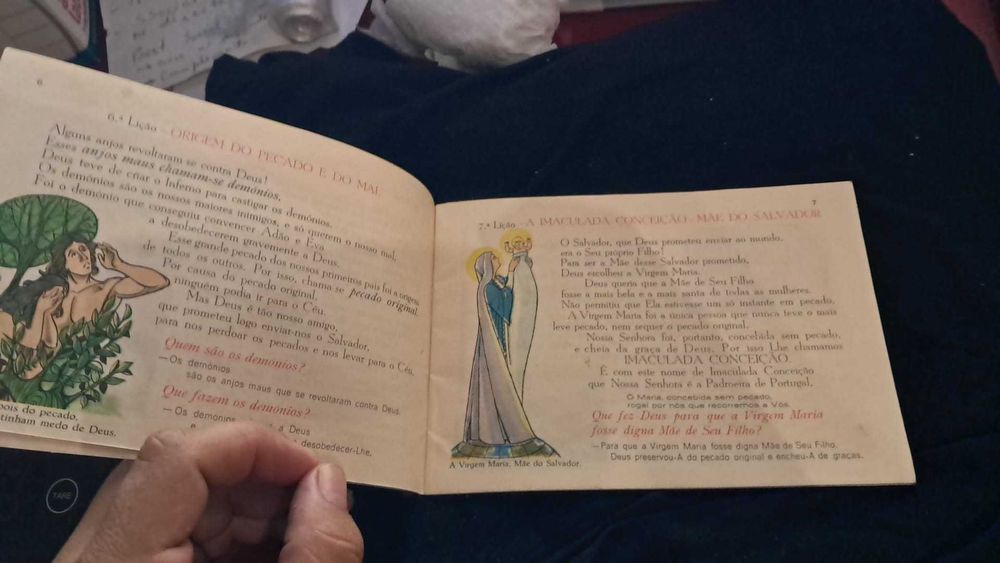 6
6.ª Lição - ORIGEM DO PECADO E DO MAL
Alguns anjos revoltaram-se contra Deus!
Esses anjos maus chamam-se demónios.
Deus teve de criar o Inferno para castigar os demónios.
Os demónios são os nossos maiores inimigos, e só querem o nosso mal.
Foi o demónio que conseguiu convencer Adão e Eva
a desobedecerem gravemente a Deus.
Esse grande pecado dos nossos primeiros pais foi a origem
de todos os outros. Por isso, chama-se pecado original.
Por causa do pecado original,
ninguém podia ir para o Céu.
Mas Deus é tão nosso amigo,
que prometeu logo enviar-nos o Salvador,
para nos perdoar os pecados e nos levar para o Céu.
Quem são os demónios?
—Os demónios
são os anjos maus que se revoltaram contra Deus.
Que fazem os demónios?
—Os demónios
a Deus
desobedecer-Lhe.
pois do pecado,
tinham medo de Deus.
7
7.ª Lição - A IMACULADA CONCEIÇÃO - MÃE DO SALVADOR
O Salvador, que Deus prometeu enviar ao mundo,
era o Seu próprio Filho!
Para ser a Mãe desse Salvador prometido,
Deus escolheu a Virgem Maria.
Deus queria que a Mãe de Seu Filho
fosse a mais bela e a mais santa de todas as mulheres.
Não permitiu que Ela estivesse um só instante em pecado.
A Virgem Maria foi a única pessoa que nunca teve o mais
leve pecado, nem sequer o pecado original.
Nossa Senhora foi, portanto, concebida sem pecado,
e cheia da graça de Deus. Por isso Lhe chamamos
IMACULADA CONCEIÇÃO.
É com este nome de Imaculada Conceição
que Nossa Senhora é a Padroeira de Portugal.
Ó Maria, concebida sem pecado,
rogai por nós que recorremos a Vós.
Que fez Deus para que a Virgem Maria
fosse digna Mãe de Seu Filho?
—Para que a Virgem Maria fosse digna Mãe de Seu Filho,
Deus preservou-A do pecado original e encheu-A de graças.
A Virgem Maria, Mãe do Salvador.
TARE